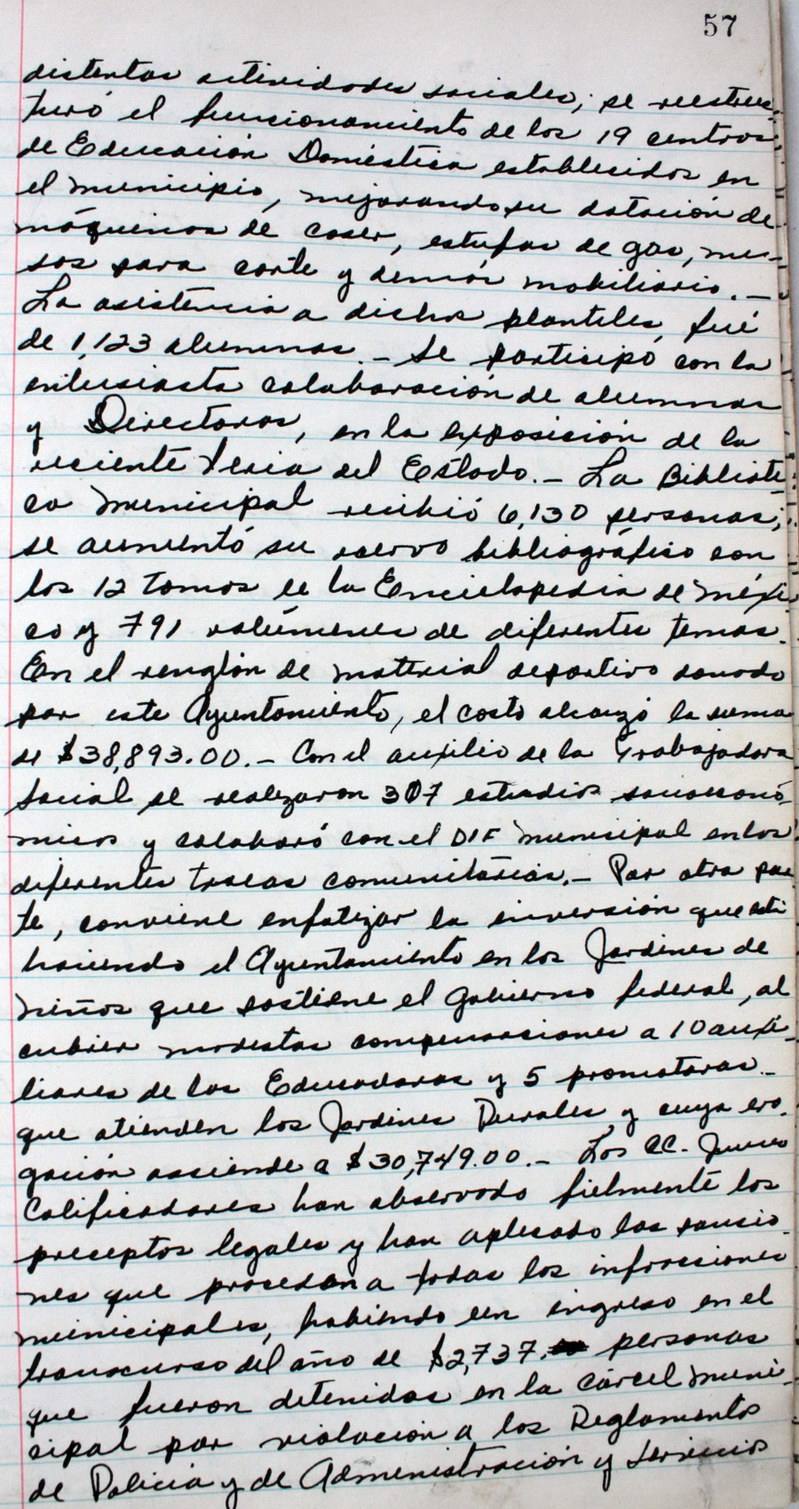 57
distintas actividades sociales; se reestruc-
turó el funcionamiento de los 19 centros
de Educación Doméstica establecidos en
el municipio, mejorando su dotación de
máquinas de coser, estufas de gas, me-
sas para corte y demás mobiliario.-
La asistencia a dichos planteles, fué
de 1,123 alumnas.- Se participó con la
entusiasta colaboración de alumnas
y Directoras, en la exposición de la
reciente Feria del Estado.- La Bibliote-
ca Municipal recibió 6,130 personas;
se aumentó su acervo bibliográfico con
los 12 tomos de la Enciclopedia de Méxi-
co y 791 volúmenes de diferentes temas.
En el renglón de material deportivo donado
por este Ayuntamiento, el costo alcanzó la suma
de $38,893.00.- Con el auxilio de la Trabajadora
Social se realizaron 307 estudios socioeconó-
micos y colaboró con el DIF Municipal en los
diferentes tareas comunitarias.- Por otra par-
te, conviene enfatizar la inversión que está
haciendo el Ayuntamiento en los Jardines de
Niños que sostiene el Gobierno federal, al
cubrir modestas compensaciones a 10 auxi-
liares de las Educadoras y 5 promotoras-
que atienden los Jardines Rurales y cuya ero-
gación asciende a $30,749.00.- Los CC. Jueces
Calificadores han observado fielmente los
preceptos legales y han aplicado las sancio-
nes que procedan a todas los infracciones
municipales, habiendo un ingreso en el
transcurso del año de $2,737. personas
que fueron detenidas en la cárcel Muni-
cipal por violación a los Reglamentos
de Policía y de Administración y Servicios